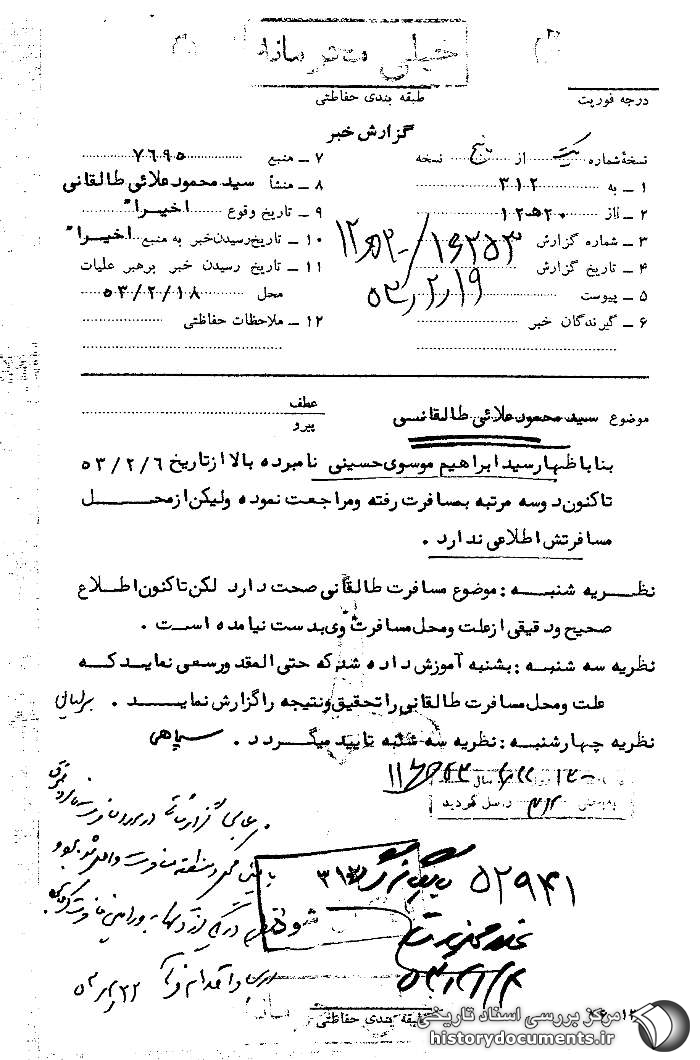 خیلی محرمانه
طبقه بندی حفاظتی
درجه فوریت
گزارش خبر
نسخهٔ شماره یک از پنج نسخه
۱ ـ به ۳۱۲
۲ ـ از ۱۲ه۲۰
۳ ـ شماره گزارش ۱۶۲۵۳/۱۲ه۲۰
۴ ـ تاریخ گزارش ۵۳٫۲٫۱۹
۵ ـ پیوست
۶ ـ گیرندگان خبر
۷ ـ منبع ۷۶۹۵
۸ ـ منشأ سید محمود علائی طالقانی
۹ ـ تاریخ وقوع اخیرا"
۱۰ ـ تاریخ رسیدن خبر به منبع اخیرا"
۱۱ ـ تاریخ رسیدن خبر برهبر عملیات
محل ۵۳/۲/۱۸
۱۲ ـ ملاحظات حفاظتی
موضوع سید محمود علائی طالقانسی
عطف
پیرو
بنا باظهار سید ابراهیم موسوی حسینی نامبرده بالا از تاریخ ۵۳/۲/۶
تاکنون دوسه مرتبه بمسافرت رفته ومراجعت نموده ولیکن از محل
مسافرتش اطلاعی ندارد .
نظریه شنبه : موضوع مسافرت طالقانی صحت دارد لکن تاکنون اطلاع
صحیح ودقیقی از علت ومحل مسافرت وی بدست نیامده است .
نظریه سه شنبه : بشنبه آموزش داده شد که حتی المقد ورسعی نماید که
علت ومحل مسافرت طالقانی را تحقیق ونتیجه را گزارش نماید .
نظریه چهارشنبه : نظریه سه شنبه تایید میگردد . سپاهی
واصل گردید
بایگانی شود ۳۱۲
۵۲۹۴۱
طبقه بندی حفاظتی
مرکز بررسی اسناد تاریخی
historydocuments.ir